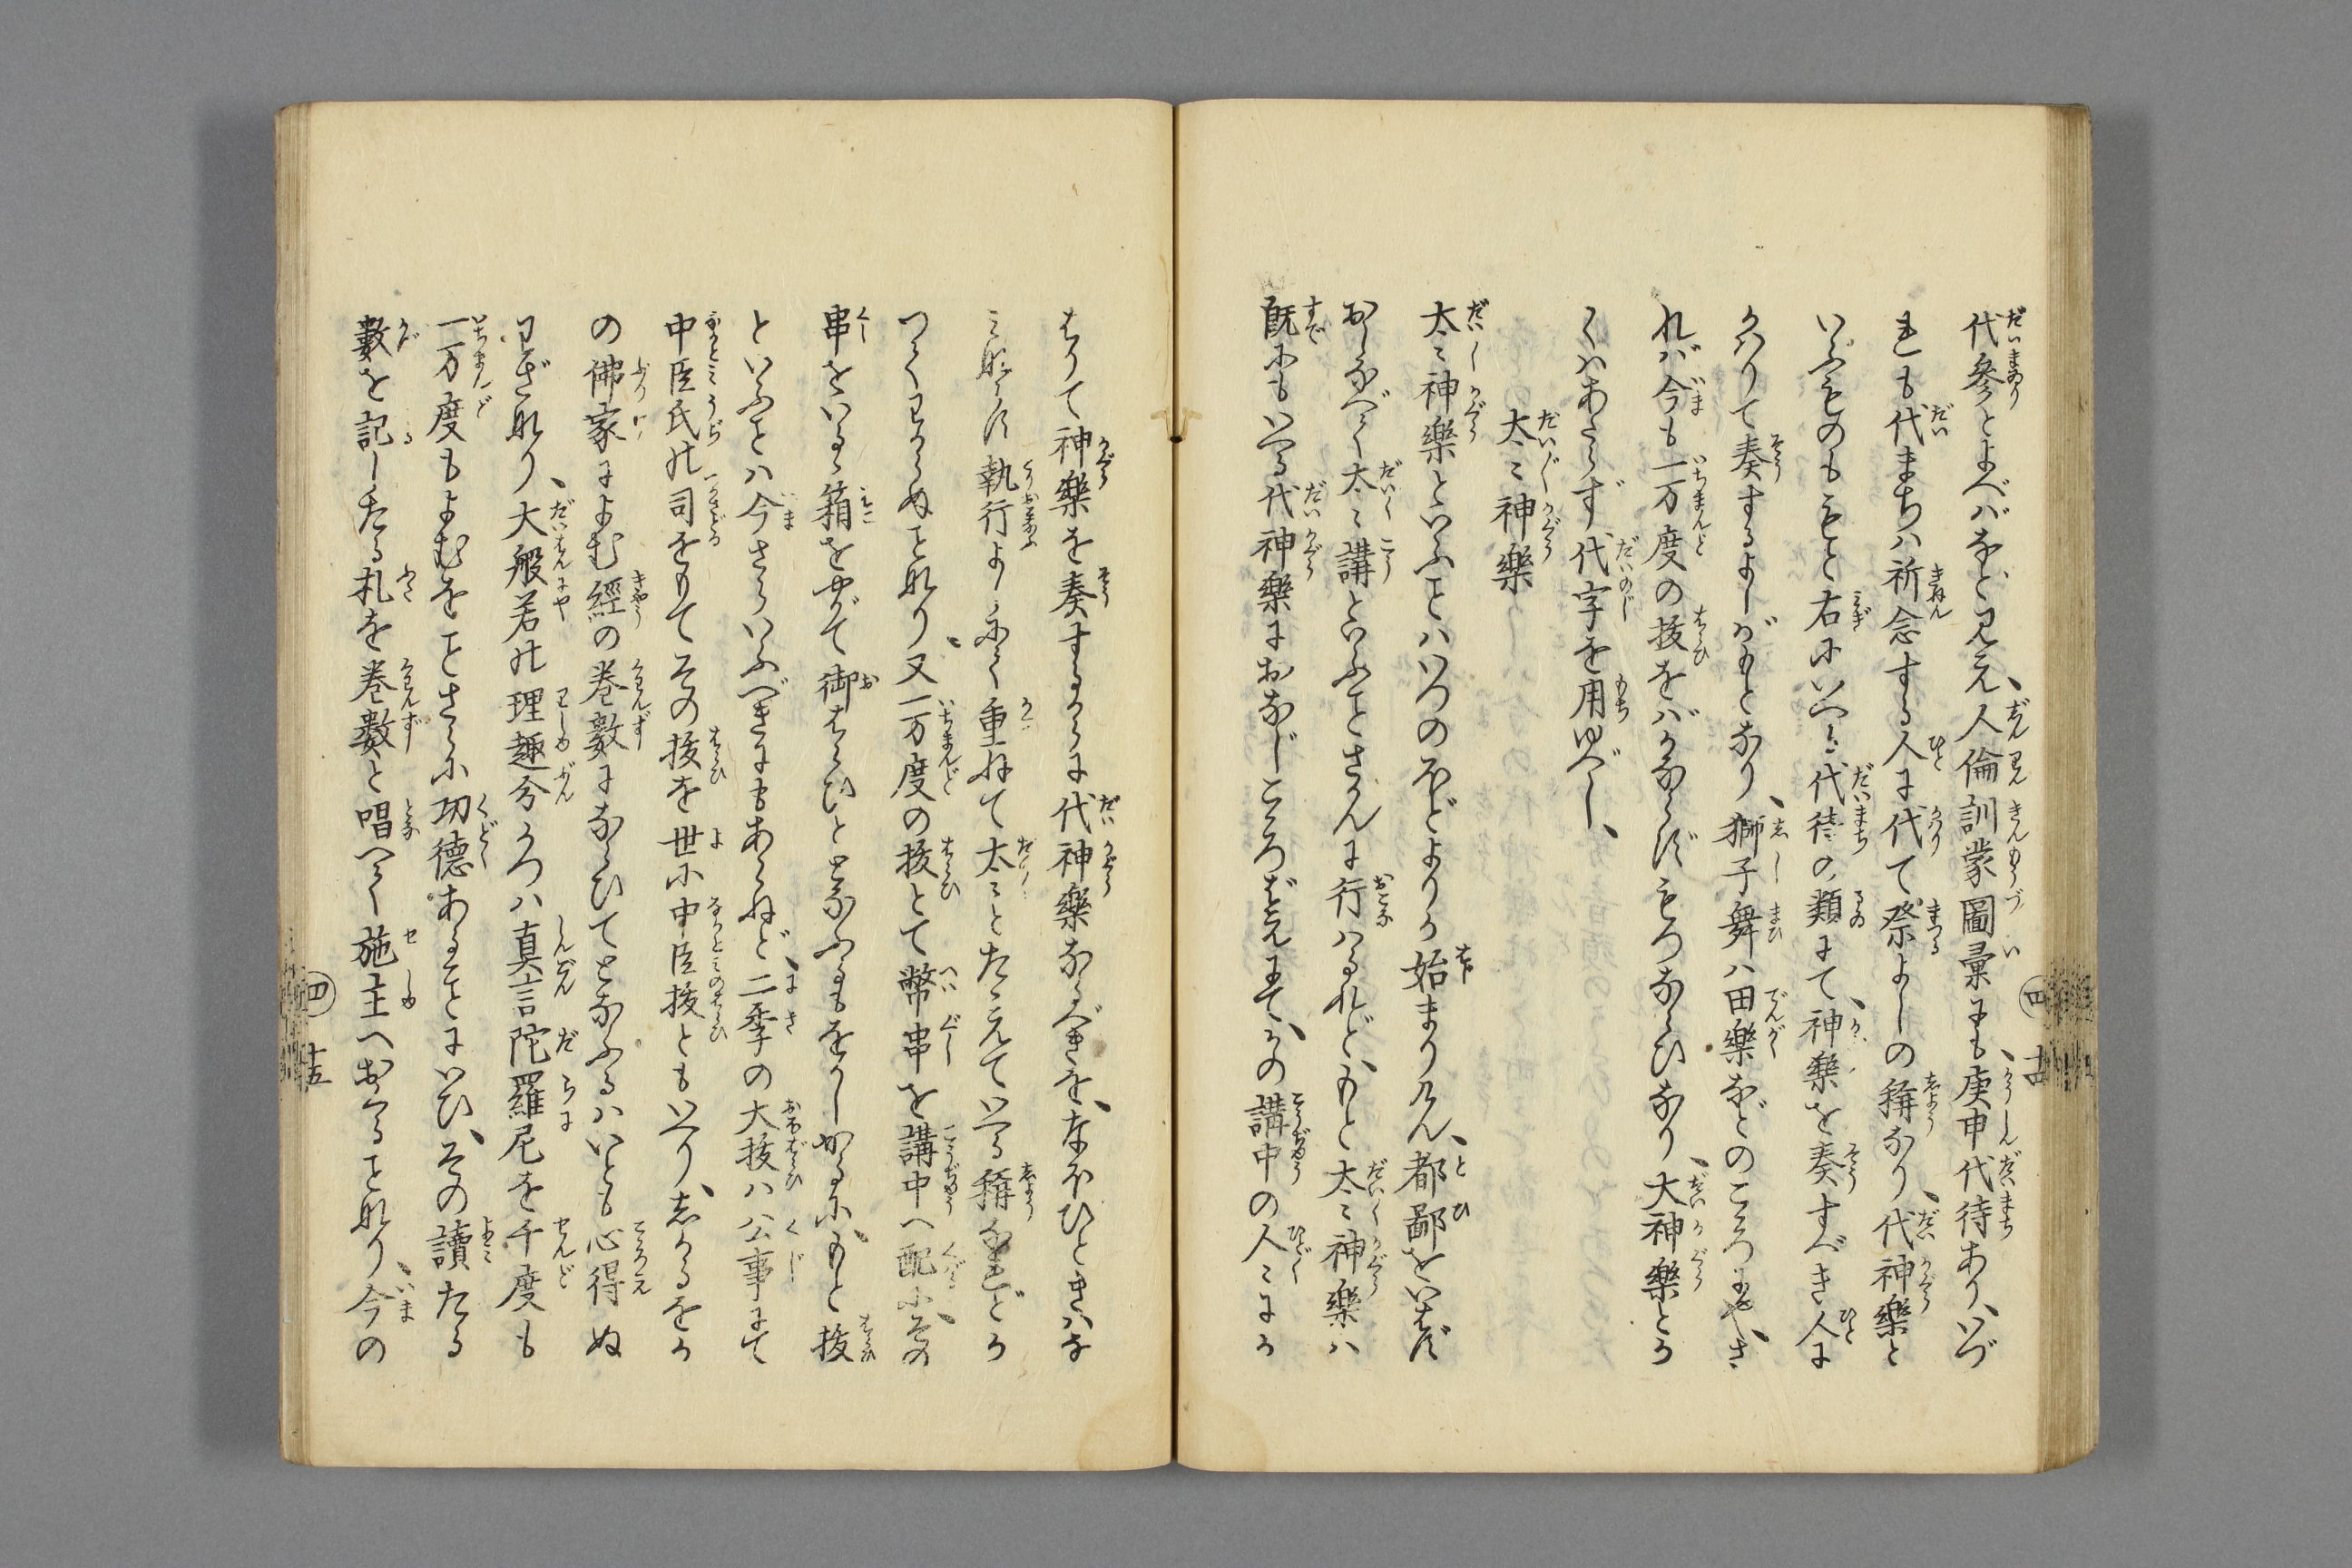 代參とよべばなど見え、人倫訓蒙圖彙にも、庚申代待あり、いづ
れも代まちハ祈念する人に代て祭よしの稱なり、代神樂と
いふものももと右にいへる代待の類にて、神樂を奏すべき人に
かはりて奏するよしがもとなり、獅子舞ハ田樂などのころにや、さ
れば今も一万度の抜をばかならずもつならひなり、大神樂とか
くハあたらず、代字を用ゆべし、
太〻神樂
太〻神樂といふことハいつのほどよりか始まりけん、都鄙をいはず
おしなべて太〻講といふことさかんに行ハるれど、もと太〻神樂ハ
既にもいへる代神樂におなじこゝろばえにて、かの講中の人〻にか
はりて神樂を奏するからに代神樂なるべきを、なほひときハま
ことなき執行よしにて重ねて太〻とたゝえていへる稱なれどか
つてわからぬことなり、又一万度の抜とて幣串を講中へ配に、その
串をいるゝ箱をやがて御はらひととなふるもをかしかるに、もと抜
といふことハ今さらいふべきにもあらねど、二季の大抜ハ公事にて
中臣氏の司をもてその抜を世に中臣抜ともいへり、しかるをか
の佛家によむ經の巻數にならひてとなふるハいとも心得ぬ
わざなり、大般若の理趣分かつハ真言陀羅尼を千度も
一万度もよむをことさらに功德あることにいひ、その讀たる
數を記したる札を巻數と唱へて施主へおくることなり、今の
四 十四
四 十五